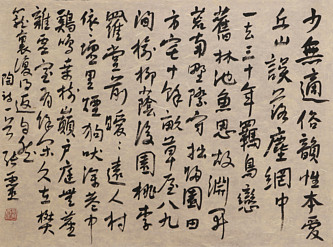 少無適俗韻性本愛
丘山誤落塵網中
一去三十年羈鳥戀
舊林池魚思故淵開
荒南野際守拙歸園田
方宅十餘畝草屋八九
間榆柳蔭後園桃李
羅堂前曖〻遠人村
依〻墟里煙狗吠深巷中
鷄鳴桑樹巔戶庭無塵
雜虛室有餘閒久在樊
籠裏復得返自然
陶詩一首 張